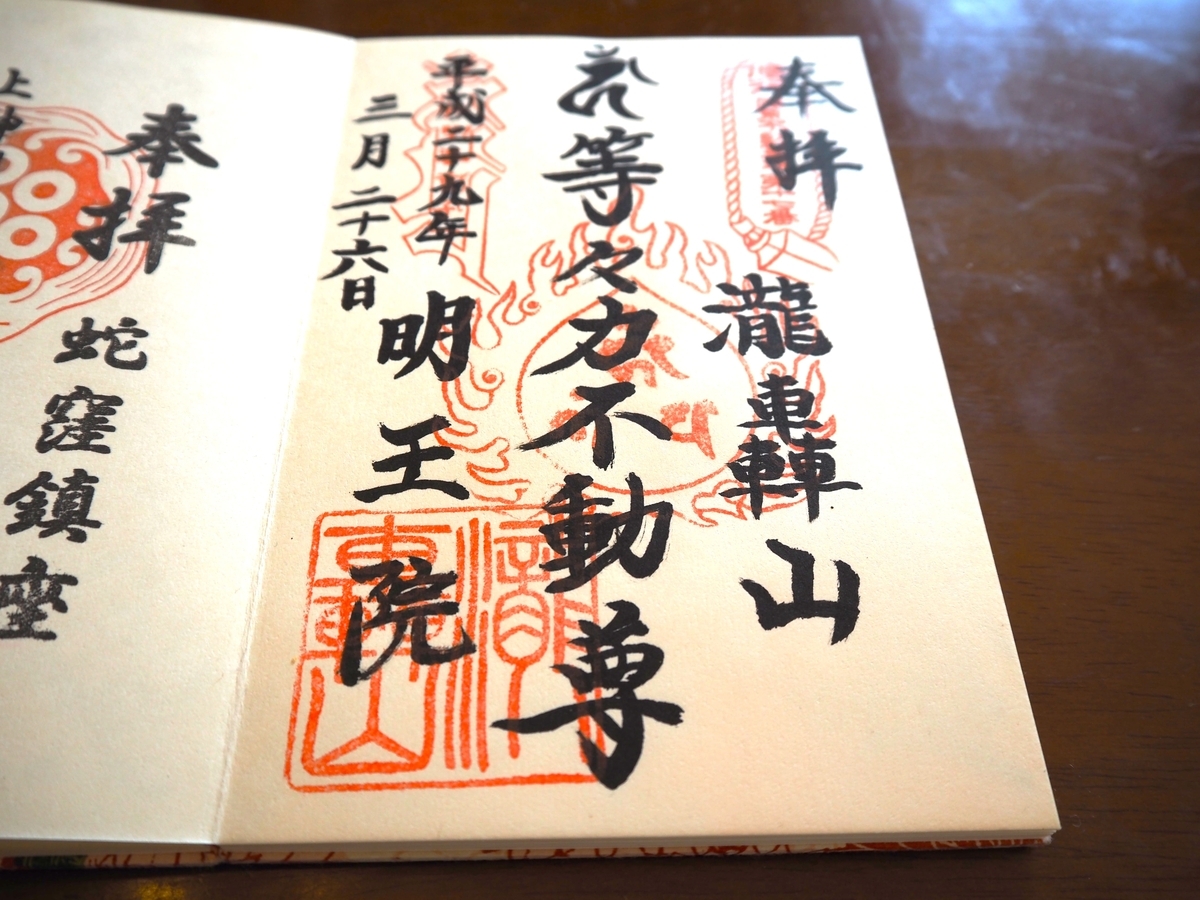 奉拝
瀧轟山
等々力不動尊
平成二十九年
三月二十六日
明王院
奉拝
蛇窪鎮座
上神